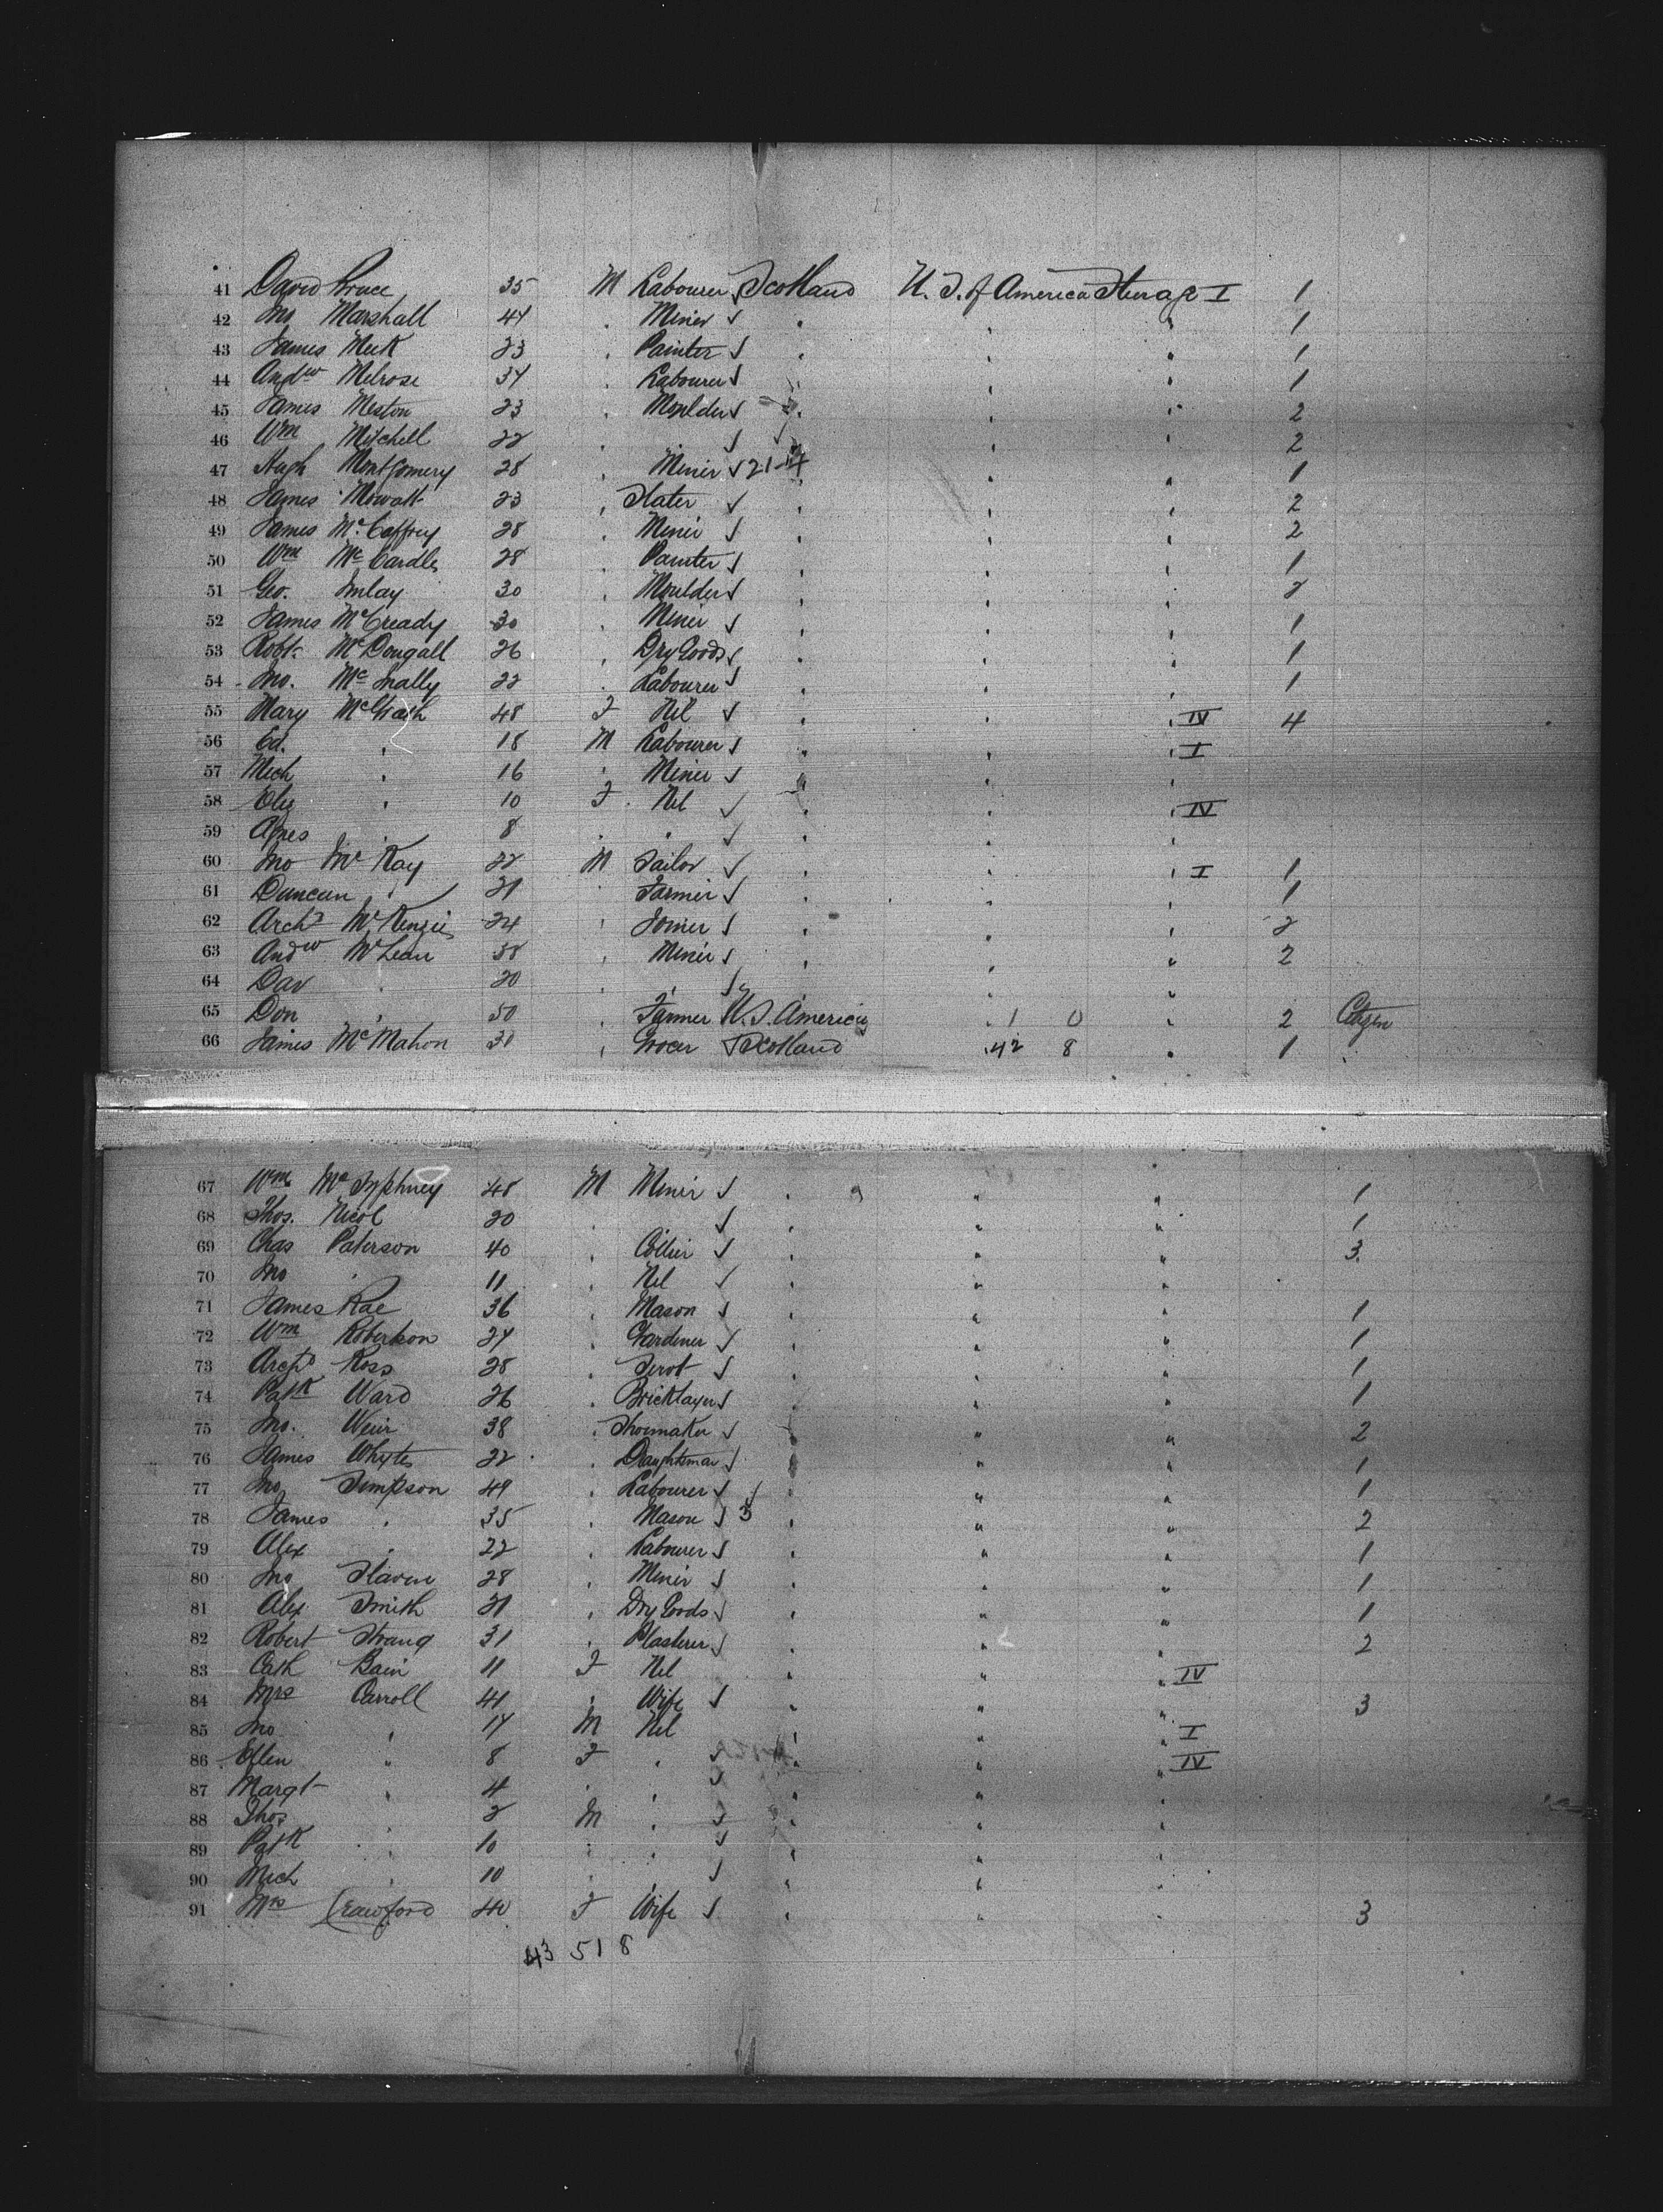 41 David Bruce 35 M Labourer Scotland U. S. of America Steerage I 1
42 Jno Marshall 44 Miner " " 1
43 James Meek 23 Painter " " 1
44 Andw Melrose 34 Labourer " " 1
45 James Meston 23 Moulder " " 2
46 Wm Mitchell 22 " " 2
47 Hugh Montgomery 28 Miner 21 " " 1
48 James Mowatt 23 Slater " " 2
49 James McCaffrey 28 Miner " " 2
50 Wm McCardle 28 Painter " " 1
51 Geo. Imlay 30 Moulder " " 2
52 James McCready 30 Miner " " 1
53 Robt McDougall 26 Dry Goods " " 1
54 Jno. McInally 22 Labourer " " 1
55 Mary McGrath 48 F Nil " " IV 4
56 Ed. " 18 M Labourer " " I
57 Mich " 16 " Miner " "
58 Eliz " 10 F Nil " " IV
59 Agnes 8 " " " "
60 Jno McKay 22 M Tailor " " I 1
61 Duncan " 21 Farmer " " 1
62 Archd McKenzie 24 " Joiner " " 2
63 Andw McLean 38 " Miner " " 2
64 Dav " 20 " " " "
65 Don " 50 " Farmer U.S. America 1 0 " 2 Citizen
66 James McMahon 30 " Grocer Scotland 42 8 " 1
67 Wm 48 M Miner " " " 1
68 Thos. Nicol 20 " " " " 1
69 Chas Paterson 40 " Collier " " " 3
70 Jno " 11 " Nil " " "
71 James Rae 36 " Mason " " " 1
72 Wm Robertson 24 " Gardener " " " 1
73 Archd Ross 28 " Servt " " " 1
74 Patk Ward 26 " Bricklayer " " " 1
75 Jno. Weir 38 " Shoemaker " " " 2
76 James Whyte 22 " Draughtsman " " " 1
77 Jno Simpson 49 " Labourer " " " 1
78 James " 35 " Mason 3 " " " 2
79 Alex " 22 " Labourer " " " 1
80 Jno Slaven 28 " Miner " " " 1
81 Alex Smith 21 " Dry Goods " " " 1
82 Robert Strang 31 " Plasterer " " " 2
83 Cath Bain 11 F Nil " " " IV
84 Mrs Carroll 41 " Wife " " " 3
85 Jno " 14 M Nil " " " I
86 Ellen " 8 F " " " " IV
87 Margt " 4 " " " " "
88 Thos " 2 M " " " "
89 Patk " 10 " " " " "
90 Mich " 10 " " " " "
91 Mrs Crawford 40 F Wife " " 3
43 51 8